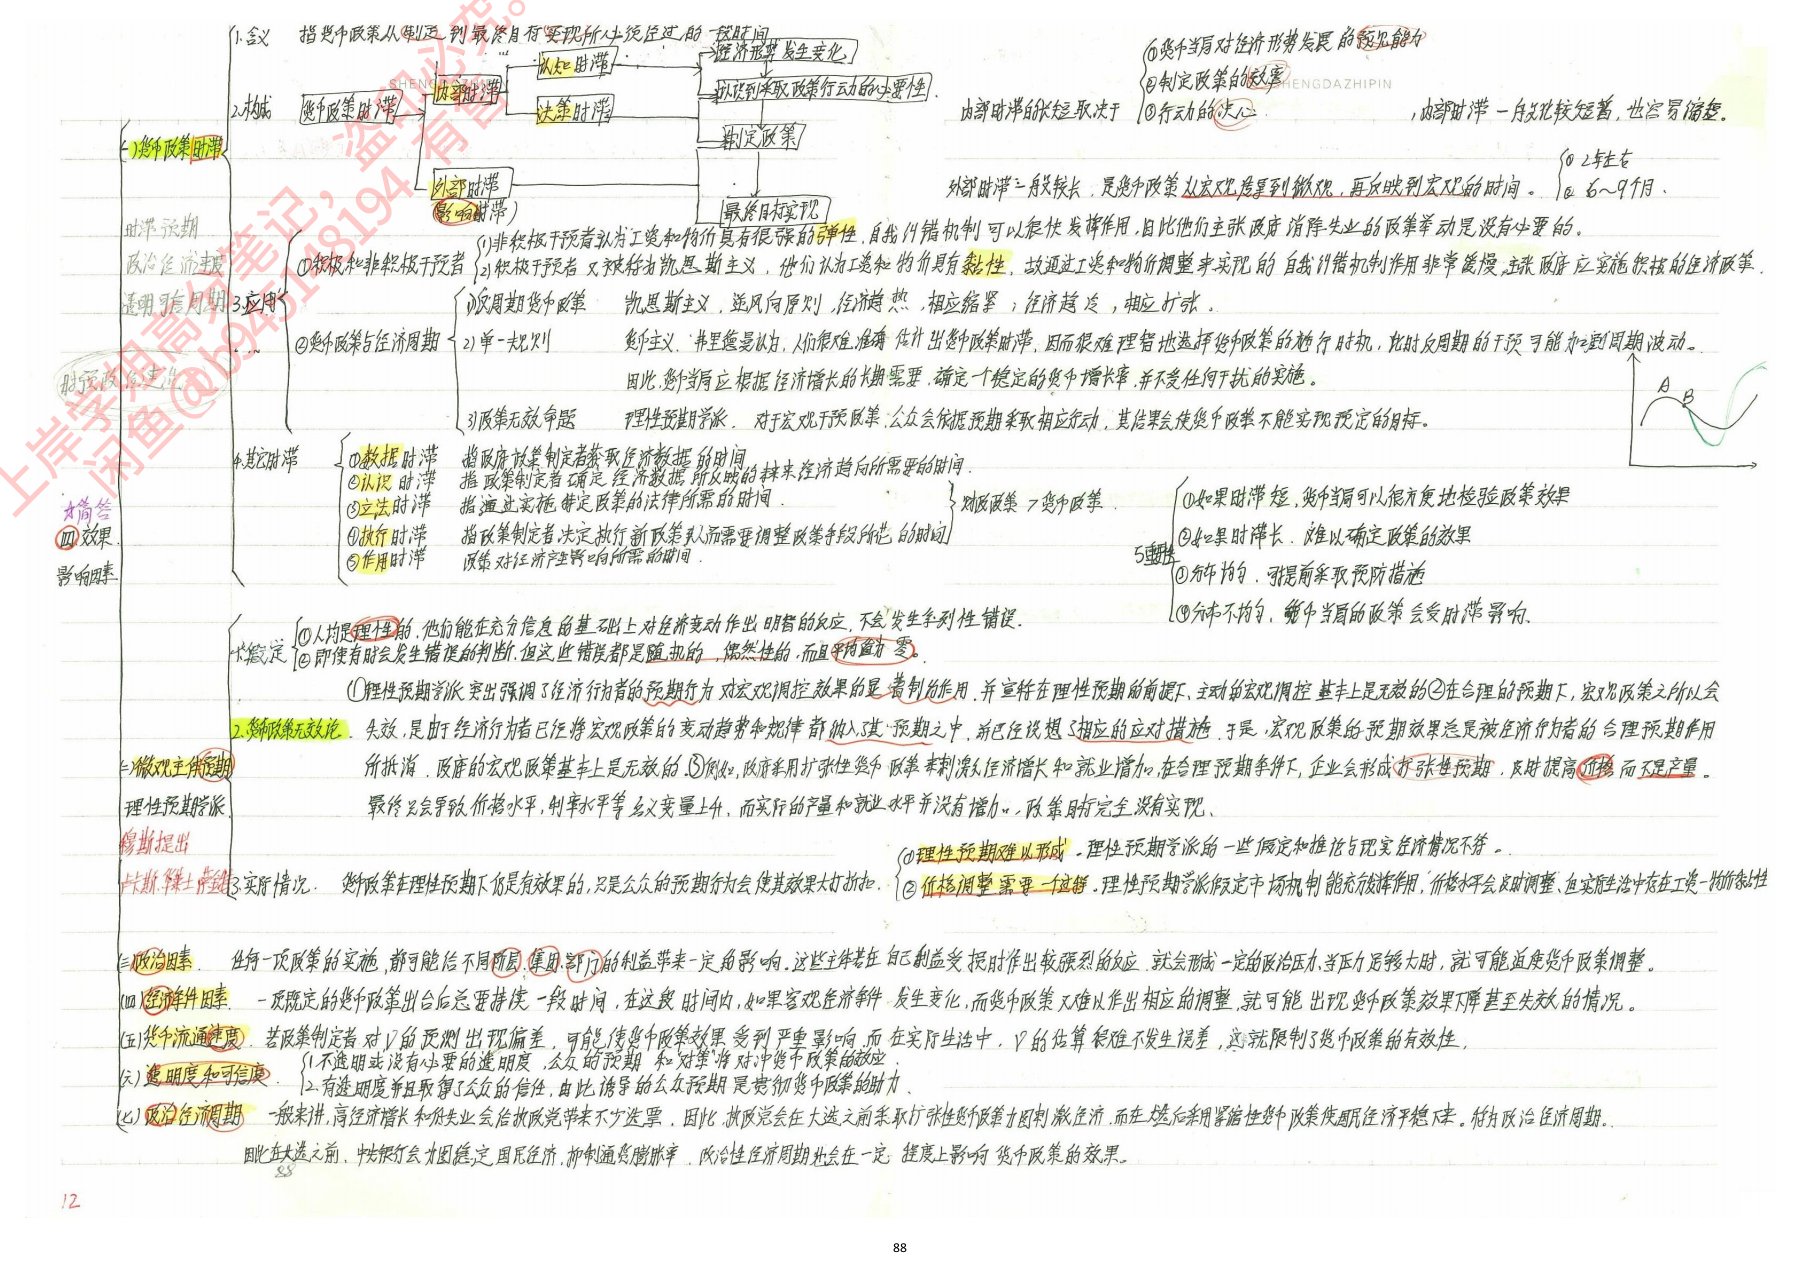 1.含义 指货币政策从制定到最终目标实现所必须经过的一段时间
2.构成 货币政策时滞
内部时滞
认知时滞
决策时滞
外部时滞
(影响时滞)
经济形势发生变化
认识到采取政策行动的必要性
制定政策
最终目标实现
SHENGDAZHIPIN
内部时滞的长短取决于
①货币当局对经济形势发展的预见能力
②制定政策的效率
③行动的决心
,内部时滞一般比较短暂,也容易缩短。
外部时滞一般较长,是货币政策从宏观传导到微观,再反映到宏观的时间。
① 2年左右
② 6~9个月.
(一)货币政策时滞
时滞预期
政治经济速度
透明可信周期
3.应用
①积极和非积极干预者
1)非积极干预者认为工资和物价具有很强的弹性,自我纠错机制可以很快发挥作用,因此他们主张政府消除失业的政策举动是没有必要的。
2)积极干预者又被称为凯恩斯主义,他们认为工资和物价具有黏性,故通过工资和物价调整来实现的自我纠错机制作用非常缓慢,主张政府应实施积极的经济政策.
②货币政策与经济周期
1)反周期货币政策 凯恩斯主义,逆风向原则,经济趋热,相应缩紧;经济趋冷,相应扩张。
2)单一规则 货币主义.弗里德曼认为,人们很难准确估计出货币政策时滞,因而很难理智地选择货币政策的施行时机,此时反周期的干预可能加剧周期波动。
因此,货币当局应根据经济增长的长期需要,确定一个稳定的货币增长率,并不受任何干扰的实施。
3)政策无效命题 理性预期学派.对于宏观干预政策,公众会依据预期采取相应行动,其结果会使货币政策不能实现预定的目标。
A B
4.其它时滞
①数据时滞 指政府政策制定者获取经济数据的时间
②认识时滞 指政策制定者确定经济数据所反映的将来经济趋向所需要的时间.
③立法时滞 指通过实施特定政策的法律所需的时间.
④执行时滞 指政策制定者决定执行新政策从而需要调整政策手段所花的时间
⑤作用时滞 政策对经济产生影响所需的时间.
财政政策 > 货币政策.
5.重要性
①如果时滞短,货币当局可以很方便地检验政策效果
②如果时滞长.难以确定政策的效果
③分布均匀.可提前采取预防措施
④分布不均匀,货币当局的政策会受时滞影响.
☆简答
四.效果
影响因素
1.假定
①人均是理性的,他们能在充分信息的基础上对经济变动作出明智的反应,不会发生系列性错误.
②即使有时会发生错误的判断.但这些错误都是随机的,偶然性的,而且平均值为零。
2.货币政策无效论.
①理性预期学派突出强调了经济行为者的预期行为对宏观调控效果的显著制约作用.并宣称在理性预期的前提下,主动的宏观调控基本上是无效的②在合理的预期下,宏观政策之所以会
失效,是由于经济行为者已经将宏观政策的变动趋势和规律都纳入了其预期之中,并已经设想了相应的应对措施.于是,宏观政策的预期效果总是被经济行为者的合理预期作用
所抵消.政府的宏观政策基本上是无效的.③例如,政府采用扩张性货币政策来刺激经济增长和就业增加,在合理预期条件下,企业会形成扩张性预期,及时提高价格而不是产量。
最终只会导致价格水平,利率水平等名义变量上升,而实际的产量和就业水平并没有增加,政策目标完全没有实现、
(二)微观主体预期
理性预期学派
穆斯提出
3.实际情况. 货币政策在理性预期下仍是有效果的,只是公众的预期行为会使其效果大打折扣.
①理性预期难以形成.理性预期学派的一些假定和推论与现实经济情况不符。
②价格调整需要一个过程.理性预期学派假定市场机制能充分发挥作用,价格水平会及时调整、但实际生活中存在工资—物价黏性
(三)政治因素. 任何一项政策的实施,都可能给不同阶层,集团,部门的利益带来一定的影响.这些主体若在自己利益受损时作出较强烈的反应.就会形成一定的政治压力,当压力足够大时,就可能迫使货币政策调整。
(四)经济条件因素. 一项既定的货币政策出台后总要持续一段时间,在这段时间内,如果客观经济条件发生变化,而货币政策又难以作出相应的调整.就可能出现货币政策效果下降甚至失效的情况。
(五)货币流通速度. 若政策制定者对V的预测出现偏差,可能使货币政策效果受到严重影响,而在实际生活中,V的估算很难不发生误差,这就限制了货币政策的有效性.
(六)透明度和可信度.
1.不透明或没有必要的透明度,公众的预期和"对策"将对冲货币政策的效应.
2.有透明度并且取得了公众的信任,由此诱导的公众预期是贯彻货币政策的助力.
(七)政治经济周期 一般来讲,高经济增长和低失业会给执政党带来不少选票.因此,执政党会在大选之前采取扩张性货币政策力图刺激经济.而在大选后采用紧缩性货币政策使国民经济平稳下来。称为政治经济周期.
因此在大选之前,中央银行会力图稳定国民经济,抑制通货膨胀率.政治性经济周期也会在一定程度上影响货币政策的效果。
88
12
88
上岸学姐高分笔记,盗印必究。
闲鱼@b945148194.有售